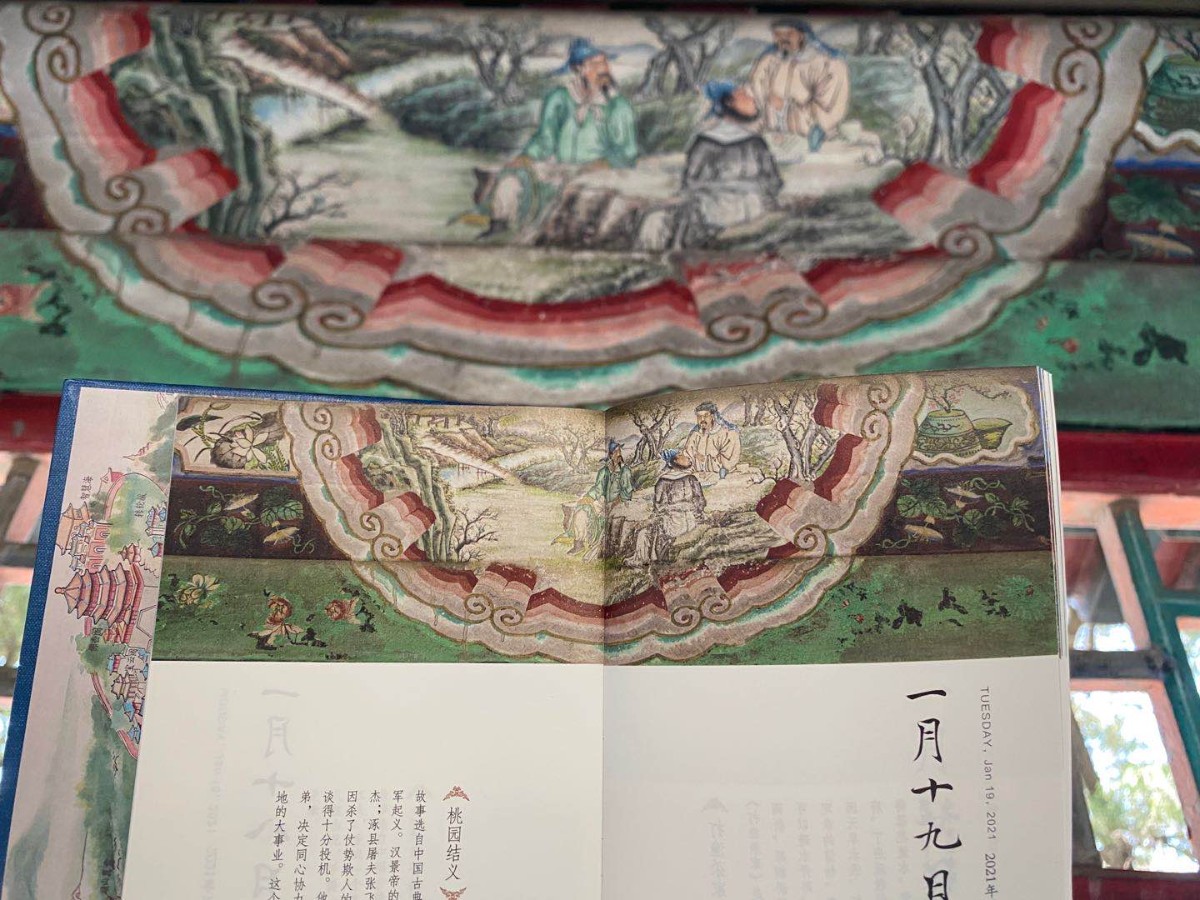 TUESDAY, Jan 19, 2021 2021年
一月十九日
桃园结义
故事选自中国古典
军起义。汉景帝的
杰；涿县屠夫张飞
因杀了仗势欺人的
谈得十分投机。他
弟，决定同心协力
地的大事业。这个